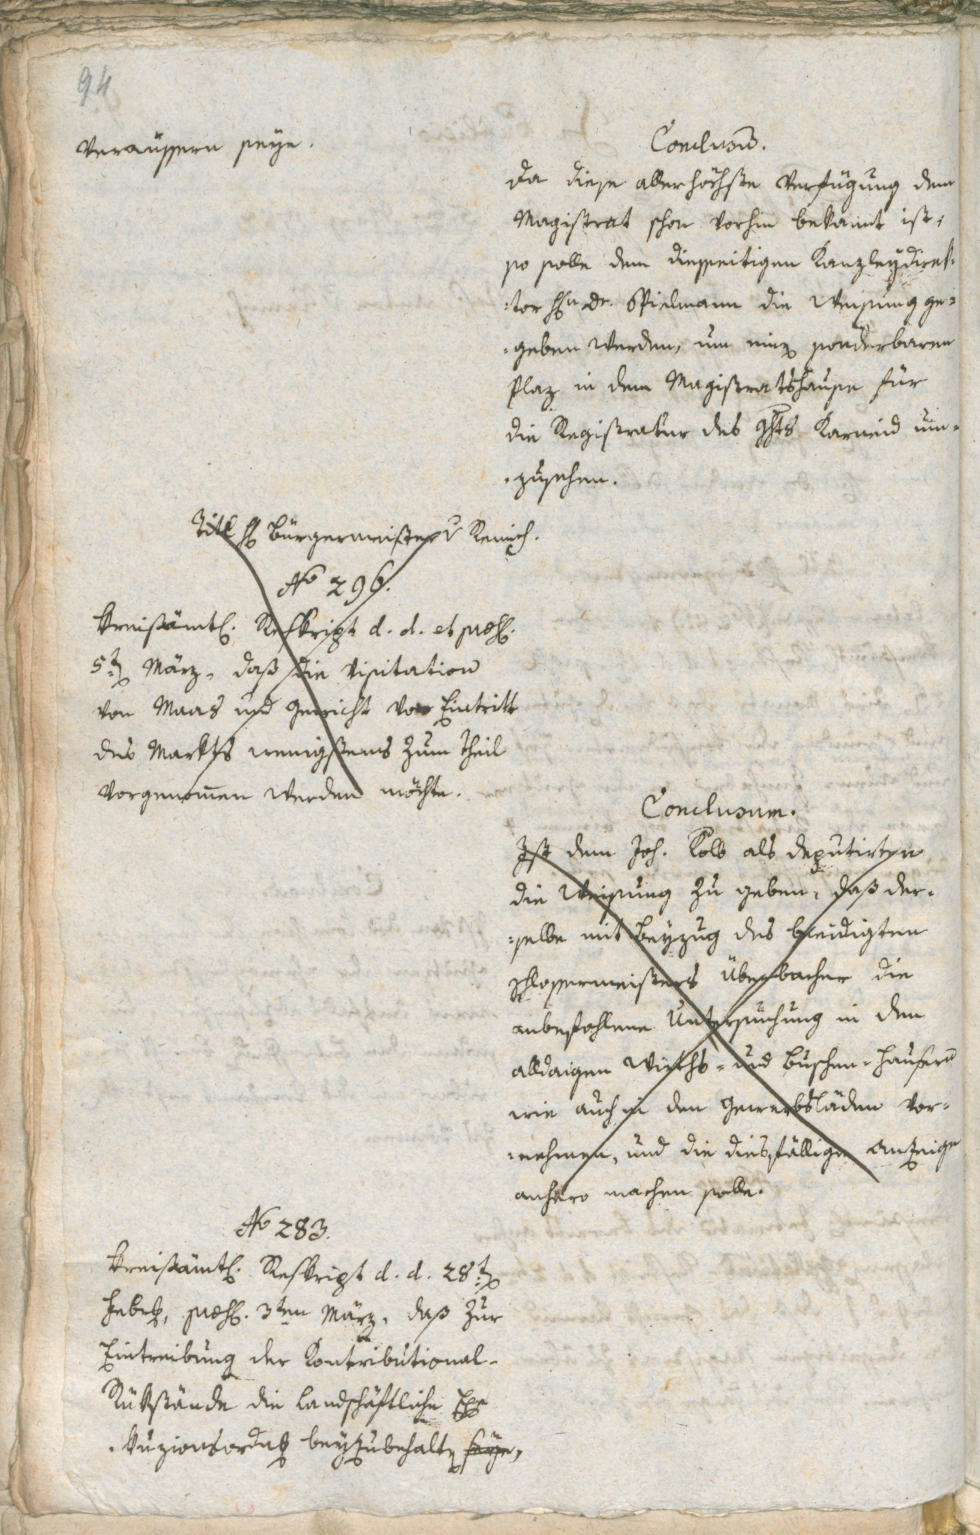 94
veräussern seye.
Conclusum.
Da diese allerhöchste Verfügung dem
Magistrat schon vorhin bekannt ist,
so solle dem diesseitigen Kanzleydirek-
tor Hn. Dr. Spielmann die Weisung ge-
geben werden, um einen sonderbaren
Plaz in dem Magistratshause für
die Registratur des Karneid um-
zusehen.
Titl H Bürgermeister v Remich.
No 296.
Kreisämtl. Reskript d. d. et præs.
5ten März, daß die Visitation
von Maas und Gewicht vor Eintritt
des Markts wenigstens zum Theil
vorgenommen werden möchte.
Conclusum.
Ist dem Joh. Kolb als deputirten
die Weisung zu geben, daß der-
selbe mit Beyzug des beeidigten
Schlossermeisters Überbacher die
anbefohlene Untersuchung in den
alldaigen Wirths- und Buschen-Häusern
wie auch in den Gewerbsläden vor-
nehmen, und die diesfällige Anzeige
anhero machen solle.
No 283.
Kreisämtl. Reskript d. d. 28ten
Febr, præs. 3ten März, daß zur
Eintreibung der Kontributional-
Rükstände die landschäftliche Exe
kuzionsordng beyzubehalten seye,